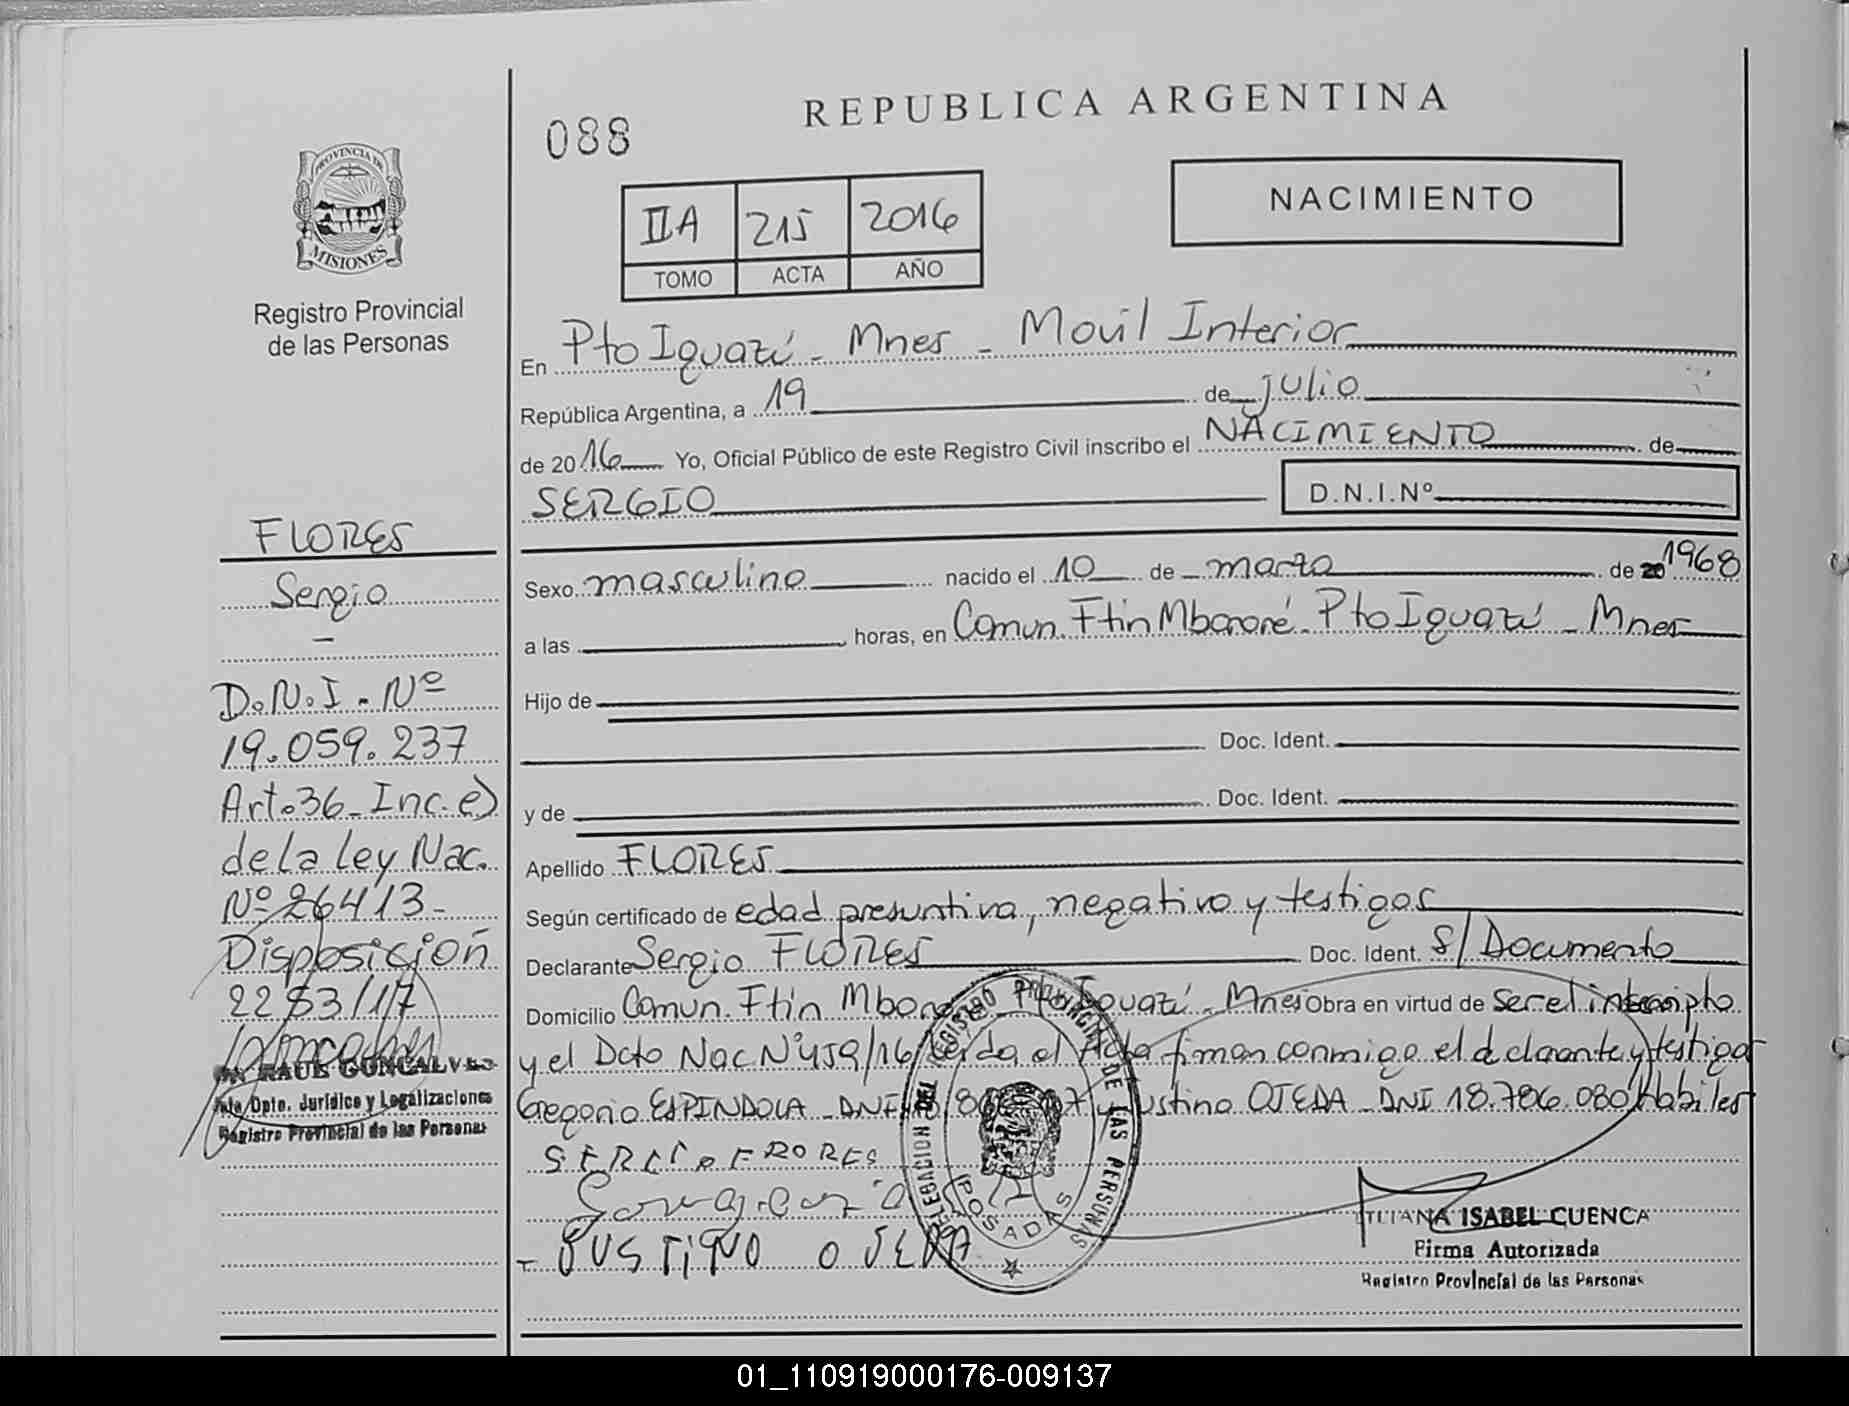 088
REPUBLICA ARGENTINA
PROVINCIA DE
MISIONES
Registro Provincial
de las Personas
IIA 215 2016
TOMO ACTA AÑO
NACIMIENTO
En Pto Iguazú - Mnes - Movil Interior
República Argentina, a 19 de julio
de 2016 Yo, Oficial Público de este Registro Civil inscribo el NACIMIENTO de
SERGIO D.N.I.Nº
FLORES
Sergio
-
D.N.I - Nº
19.059.237
Art. 36 - Inc. e)
de la ley Nac.
Nº 26413 -
Disposición
2253/17
RAUL GONCALVES
Dpto. Jurídico y Legalizaciones
Registro Provincial de las Personas
Sexo masculino nacido el 10 de marzo de 20 1968
a las horas, en Comun. Ftin Mbororé - Pto Iguazú - Mnes
Hijo de
Doc. Ident.
y de Doc. Ident.
Apellido FLORES
Según certificado de edad presuntiva, negativo y testigos
Declarante Sergio FLORES Doc. Ident. S/Documento
Domicilio Comun. Ftin Pto Iguazú - Mnes Obra en virtud de ser el inscripto
y el Dcto Nac Nº 459/16 Leida el Acta firman conmigo el declarante y testigos
Gregorio ESPINDOLA - DNI OJEDA - DNI 18.786.080 Habiles
SERCIO FRORES
JUSTIQUO OJEDA
DELEGACION DEL REGISTRO PROVINCIAL DE LAS PERSONAS
POSADAS
LILIANA ISABEL CUENCA
Firma Autorizada
Registro Provincial de las Personas
01_110919000176-009137